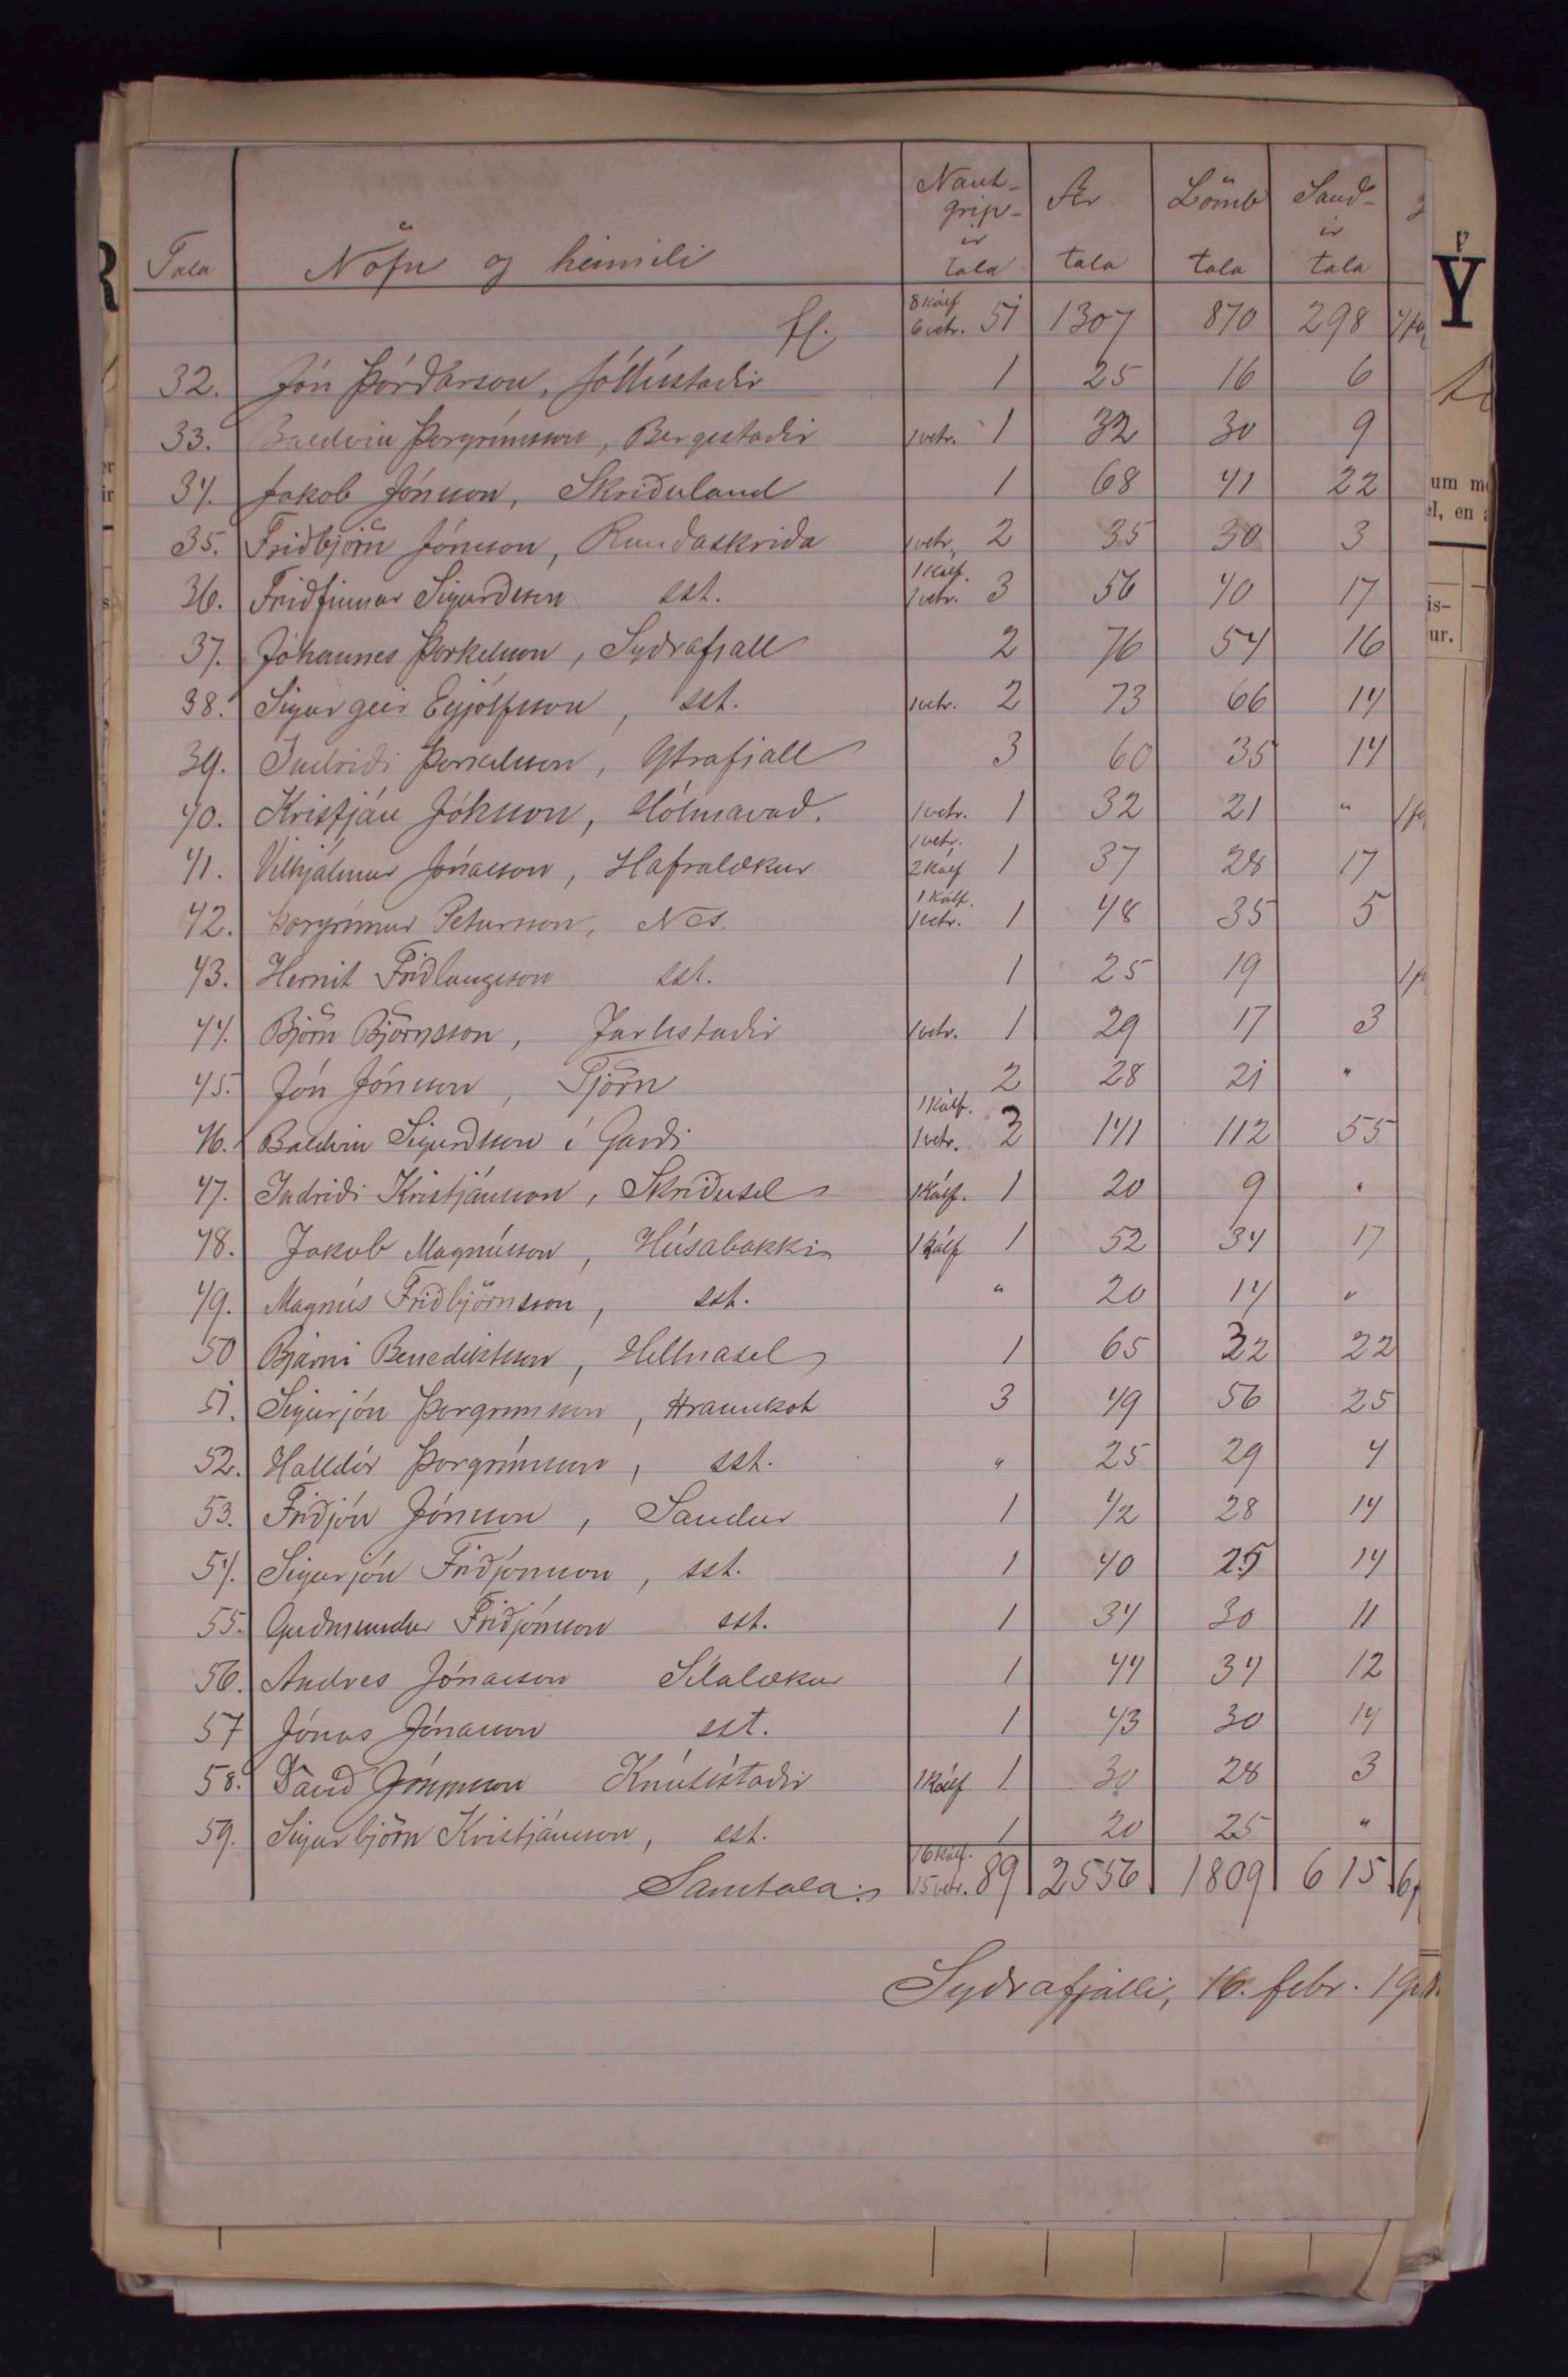 Tala Nöfn og heimili Naut-gripir tala Ær tala Lömb tala Sauðir tala
fl. 8 kálf 6 vetr. 51 1307 870 298
32. Jón Þórðarson, Jódísstaðir 1 25 16 6
33. Baldvin Þorgrímsson, Bergsstaðir 1 vetr. 1 32 30 9
34. Jakob Jónsson, Skriðuland 1 68 41 22
35. Friðbjörn Jónsson, Rauðaskriða 1 vetr. 2 35 30 3
36. Friðfinnur Sigurðsson sst. 1 kálf. 1 vetr. 3 56 40 17
37. Jóhannes Þorkelsson, Syðrafjall 2 76 54 16
38. Sigurgeir Eyjólfsson, sst. 1 vetr. 2 73 66 14
39. Indriði Þorkelsson, Ytrafjall 3 60 35 14
40. Kristján Jónsson, Hólmavað. 1 vetr. 1 32 21 "
41. Vilhjálmur Jónasson, Hafralækur 1 vetr. 2 kálf 1 37 28 17
42. Þorgrímur Petursson, Nes. 1 kálf. 1 vetr. 1 48 35 5
43. Hernit Friðlaugsson sst. 1 25 19
44. Björn Björnsson, Jarlsstaðir 1 vetr. 1 29 17 3
45. Jón Jónsson, Tjörn 2 28 21 "
46. Baldvin Sigurðsson í Garði 1 kálf. 1 vetr. 2 141 112 55
47. Indriði Kristjánsson, Skriðusel 1 kálf. 1 20 9 "
48. Jakob Magnússon, Húsabakki 1 kálf 1 52 34 17
49. Magnús Friðbjörnsson, sst. " 20 14 "
50 Bjarni Benediktsson, Hellnasel 1 65 32 22
51. Sigurjón Þorgrímsson, Hraunkot 3 49 56 25
52. Halldór Þorgrímsson, sst. " 25 29 4
53. Friðjón Jónsson, Sandur 1 42 28 14
54. Sigurjón Friðjónsson, sst. 1 40 25 14
55. Guðmundur Friðjónsson sst. 1 34 30 11
56. Andres Jónasson Sílalækur 1 44 34 12
57 Jónas Jónasson sst. 1 43 30 14
58. Davíð Jónsson Knútsstaðir 1 kálf 1 30 28 3
59. Sigurbjörn Kristjánsson, sst. 1 20 25 "
Samtala: 16 kálf. 15 vetr. 89 2556 1809 615
Syðrafjalli, 16. febr.
Y
um
el, en
is-
ur.